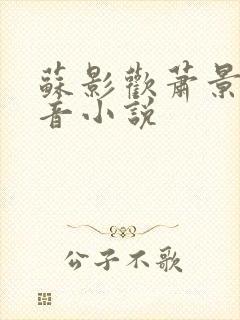 蘇影歡蕭景
音小說
公子不歌